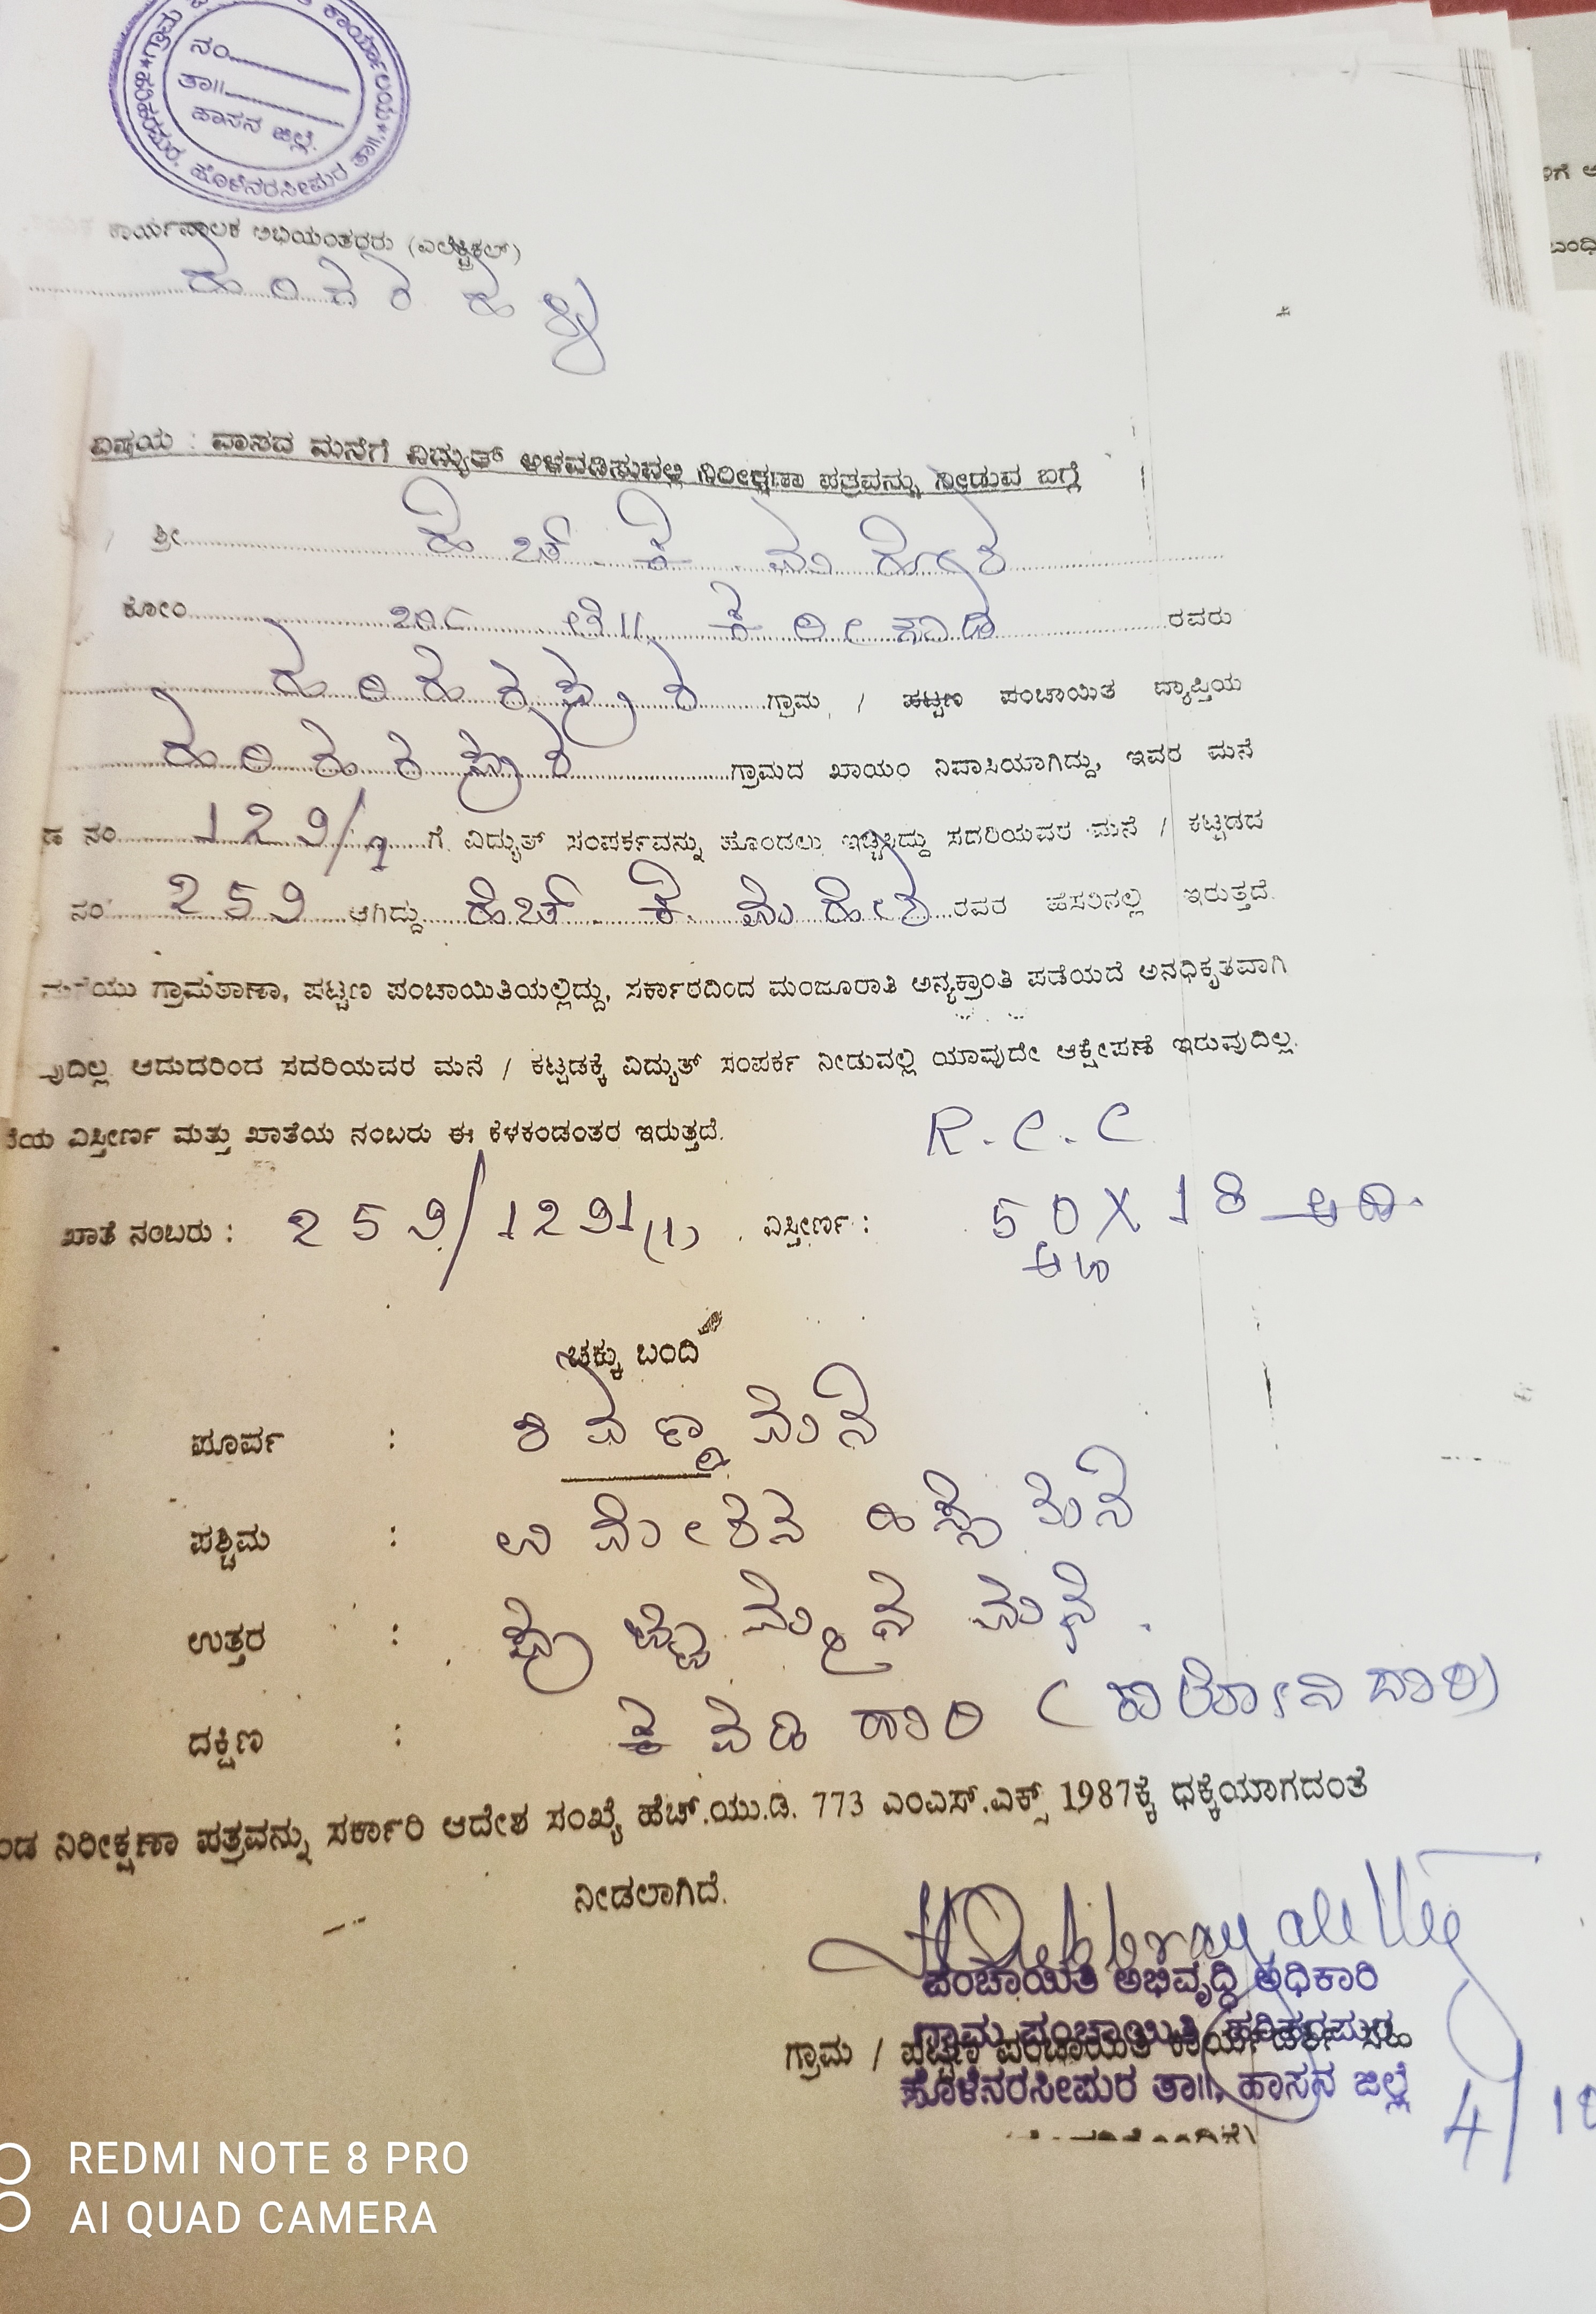 ಕಾರ್ಯಾಲಯ * ತಾ||
ಹರಿಹರಪುರ, ಹೊಳೆನರಸೀಪುರ ತಾ||
ನಂ
ತಾ||
ಹಾಸನ ಜಿಲ್ಲೆ.
ಕಾರ್ಯಪಾಲಕ ಅಭಿಯಂತರರು (ಎಲೆಕ್ಟ್ರಿಕಲ್)
ವಿಷಯ : ವಾಸದ ಮನೆಗೆ ವಿದ್ಯುತ್ ಅಳವಡಿಸುವಲ್ಲಿ ನಿರೀಕ್ಷಣಾ ಪತ್ರವನ್ನು ನೀಡುವ ಬಗ್ಗೆ
ಶ್ರೀ ಹೆಚ್. ಕೆ. ಮಹೇಶ
ಕೋಂ ಬಿನ್ ಲೇ|| ಕರೀಗೌಡ ರವರು
ಹರಿಹರಪುರ ಗ್ರಾಮ / ಪಟ್ಟಣ ಪಂಚಾಯಿತ ವ್ಯಾಪ್ತಿಯ
ಹರಿಹರಪುರ ಗ್ರಾಮದ ಖಾಯಂ ನಿವಾಸಿಯಾಗಿದ್ದು, ಇವರ ಮನೆ
ಡ ನಂ 129/1 ಗೆ ವಿದ್ಯುತ್ ಸಂಪರ್ಕವನ್ನು ಹೊಂದಲು ಇಚ್ಚಿಸಿದ್ದು ಸದರಿಯವರ ಮನೆ / ಕಟ್ಟಡದ
ನಂ 259 ಆಗಿದ್ದು ಹೆಚ್. ಕೆ. ಮಹೇಶ ರವರ ಹೆಸರಿನಲ್ಲಿ ಇರುತ್ತದೆ.
ಮನೆಯು ಗ್ರಾಮಠಾಣಾ, ಪಟ್ಟಣ ಪಂಚಾಯಿತಿಯಲ್ಲಿದ್ದು, ಸರ್ಕಾರದಿಂದ ಮಂಜೂರಾತಿ ಅನ್ಯಕ್ರಾಂತಿ ಪಡೆಯದೆ ಅನಧಿಕೃತವಾಗಿ
ವುದಿಲ್ಲ. ಆದುದರಿಂದ ಸದರಿಯವರ ಮನೆ / ಕಟ್ಟಡಕ್ಕೆ ವಿದ್ಯುತ್ ಸಂಪರ್ಕ ನೀಡುವಲ್ಲಿ ಯಾವುದೇ ಆಕ್ಷೇಪಣೆ ಇರುವುದಿಲ್ಲ.
ತೆಯ ವಿಸ್ತೀರ್ಣ ಮತ್ತು ಖಾತೆಯ ನಂಬರು ಈ ಕೆಳಕಂಡಂತರ ಇರುತ್ತದೆ. R.C.C
ಖಾತೆ ನಂಬರು : 259/1291(1) ವಿಸ್ತೀರ್ಣ : 50 X 18 ಅಡಿ.
ಚಕ್ಕು ಬಂದಿ
ಪೂರ್ವ : ಶಿವಣ್ಣ ಮನೆ
ಪಶ್ಚಿಮ : ಉಮೇಶನ ಹಿಸ್ಸೆ ಮನೆ
ಉತ್ತರ : ಪುಟ್ಟಮ್ಮನ ಮನೆ.
ದಕ್ಷಿಣ : ದಾರಿ (ಕಾಲೋನಿ ದಾರಿ)
ಂಡ ನಿರೀಕ್ಷಣಾ ಪತ್ರವನ್ನು ಸರ್ಕಾರಿ ಆದೇಶ ಸಂಖ್ಯೆ ಹೆಚ್.ಯು.ಡಿ. 773 ಎಂಎಸ್.ಎಕ್ಸ್ 1987ಕ್ಕೆ ಧಕ್ಕೆಯಾಗದಂತೆ
ನೀಡಲಾಗಿದೆ.
ಪಂಚಾಯಿತಿ ಅಭಿವೃದ್ಧಿ ಅಧಿಕಾರಿ
ಗ್ರಾಮ ಪಂಚಾಯಿತಿ, ಹರಿಹರಪುರ
ಗ್ರಾಮ / ಪಟ್ಟಣ ಪಂಚಾಯಿತಿ
ಹೊಳೆನರಸೀಪುರ ತಾ||, ಹಾಸನ ಜಿಲ್ಲೆ
4/10
REDMI NOTE 8 PRO
AI QUAD CAMERA